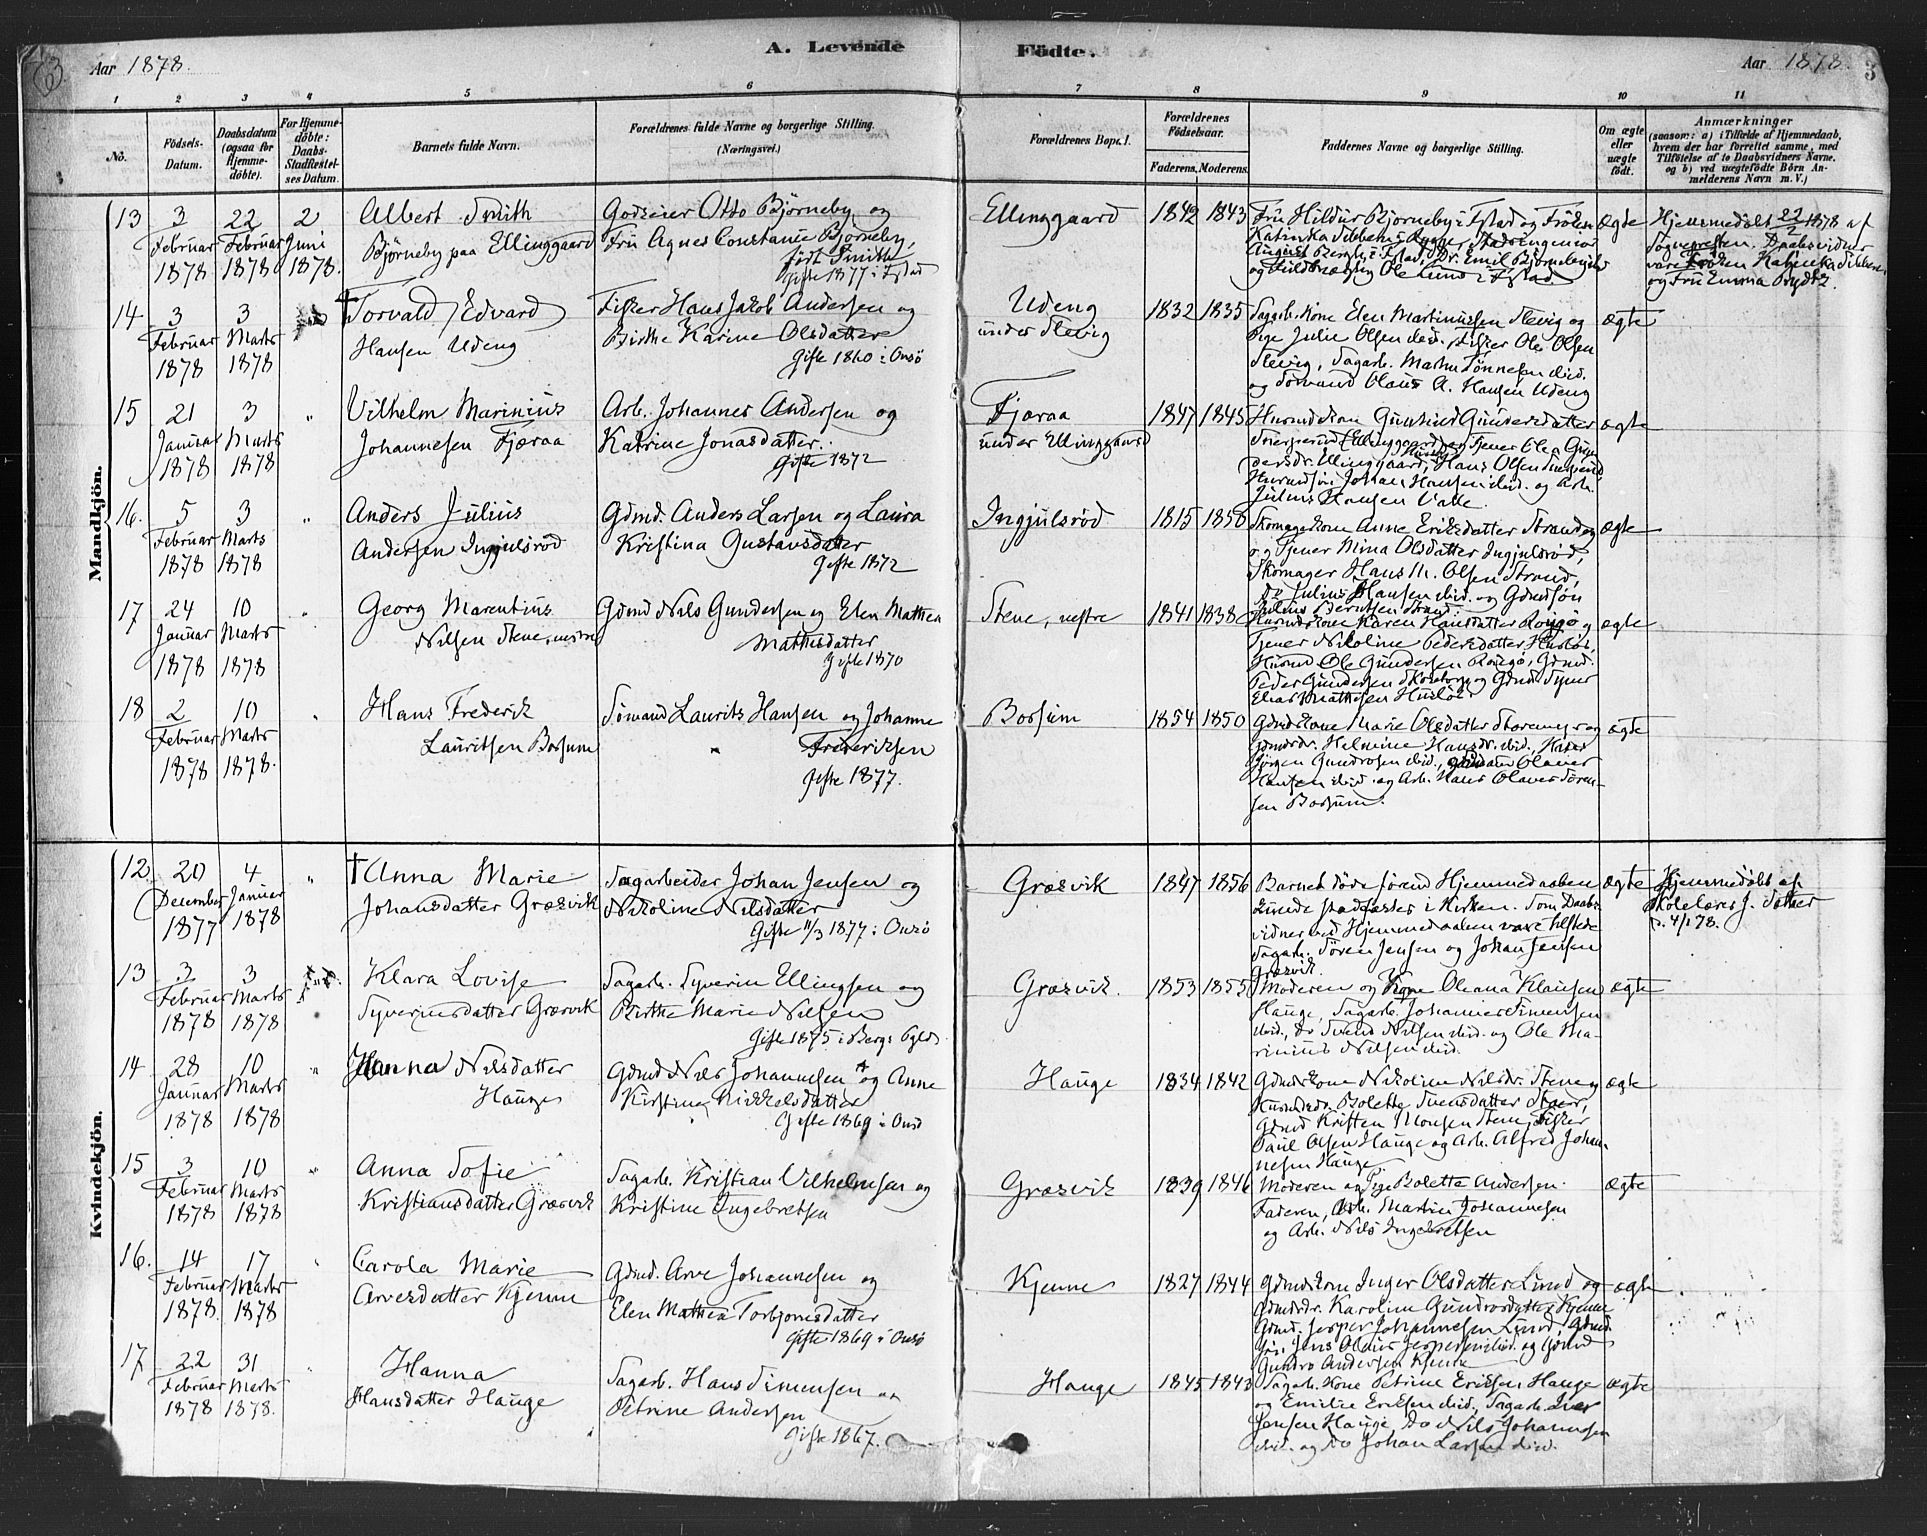 Aar 1878.
A. Levende
Födte.
Aar 1878.
3
1 2 3 4 5 6 7 8 9 10 11
No.
Födsels-Datum.
Daabsdatum (ogsaa for Hjemme-döbte).
For Hjemme-döbte: Daabs-Stadfæstel-ses Datum.
Barnets fulde Navn.
Forældrenes fulde Navne og borgerlige Stilling. (Næringsvei.)
Forældrenes Bopæl.
Forældrenes Födselsaar.
Faderens. Moderens.
Faddernes Navne og borgerlige Stilling.
Om ægte eller uægte födt.
Anmærkninger
(saasom: a) i Tilfælde af Hjemmedaab, hvem der har forrettet samme, med Tilföielse af to Daabsvidners Navne. og b) ved uægtefödte Börn Anmelderens Navn m. V.)
Mandkjön.
13 3 Februar 1878 22 Februar 1878 2 Juni 1878.
Albert Smith
Bjørneby paa Ellinggaard
Godseier Otto Bjørneby og
Fru Agnes Constance Bjørneby,
født Smith
Gifte 1877 i Fstad
Ellinggaard
1842 1843
Fru Hildur Bjørneby i Fstad og Frøken
Katinka Sibbern Rygge, Stadsingeniør
Ole Lund i Fstad
Ægte
Hjemmedøbt 22/2 1878 af
Sognepresten. Daabsvidner
vare Frøken Katinka Sibbern
og Fru Emma Brydtz.
14 3 Februar 1878 3 Marts 1878
† Torvald Edvard
Hansen Udeng
Fisker Hans Jakob Andersen og
Birthe Karine Olsdatter
Gifte 1860 i Onsø
Udeng
under Slevig
1832 1835
Sagarb. Kone Elen Martinussen Slevig og
Pige Julie Olsen ibid., Fisker Ole Olsen
Slevig, Sagarb. Mathis Tønnesen ibid.
og Sømand Olaus A. Hansen Udeng
ægte
15 21 Januar 1878 3 Marts 1878 "
Vilhelm Marinius
Johannesen Fjæraa
Arb. Johannes Andersen og
Katrine Jonasdatter.
Gifte 1872
Fjæraa
under Ellinggaard
1847 1845
Husmdskon Gunhild Gundersdatter
Ellinggaard, Hans Olsen
Husmdsøn Johan Hansen ibid. og Arb.
Julius Hansen Valle
ægte
16. 5 Februar 1878 3 Marts 1878 "
Anders Julius
Andersen Ingjulsrød
Gdmd. Anders Larsen og Laura
Kristina Gustavsdatter
Gifte 1872
Ingjulsrød
1815 1850
Skomagerkone Anne Eriksdatter Strand og
Tjener Mina Olsdatter Ingjulsrød,
Skomager Hans M. Olsen Strand,
Do Julius Hansen ibid. og Gdmdsøn
Julius Berntsen Strand.
ægte
17 24 Januar 1878 10 Marts 1878 "
Georg Marentius
Nilsen Stene, nestre
Gdmd Nils Gundersen og Elen Mathea
Mathisdatter
Gifte 1870
Stene, nestre
1841 1838
Husmdskone Karen Hansdatter Rougsø og
Tjener Nikoline Pedersdatter Husløs,
Husmd Ole Gundersen Rougsø, Gdmd.
Peder Gundersen og Gdmd. Syver
Elias Mathisen Husløs
ægte
18 2 Februar 1878 10 Marts 1878. "
Hans Frederik
Lauritsen Borsum
Sømand Laurits Hansen og Johanne
" Frederiksen
Gifte 1877.
Borsum
1854 1850
Gdmdskone Marie Olsdatter Storemyr og
Gdmdsdr. Helmine Hansdr. ibid.,
Jørgen Gundrosen ibid., Olaves
Hansen ibid. og Arb. Hans Olaves Sören-
sen Borsum.
ægte
Kvindekjön.
12. 20 December 1877 4 Januar 1878 "
† Anna Marie
Johansdatter Græsvik
Sagarbeider Johan Jensen og
Nikoline Nilsdatter
Gifte 11/3 1877 i Onsø
Græsvik
1847 1856
Barnet døde førend Hjemmedaaben
kunde stadfæstes i Kirken. Som Daabs-
vidner ved Hjemmedaaben vare tilstede
Sagarb. Sören Jensen og Johan Jensen
Græsvik.
ægte
Hjemmedøbt af
Skolelærer J. Sæther
d. 4/1 78.
13 3 Februar 1878 3 Marts 1878
Klara Lovise
Syverinsdatter Græsvik
Sagarb. Syverin Ellingsen og
Birthe Marie Nilsen
Gifte 1875 i Bergs Pgld.
Græsvik.
1853 1855
Moderen og Pige Oleana Klausen
Hauge, Sagarb. Johannes Simensen
ibid., Do Svend Nilsen ibid. og Ole Ma-
rinius Nilsen ibid.
ægte
14 28 Januar 1878 10 Marts 1878 "
Hanna Nilsdatter
Hauge
Gdmd Nils Johannesen og Anne
Kirstine Mikkelsdatter
Gifte 1869 i Onsø
Hauge
1834 1842
Gdmdskone Nikoline Nilsdr. Stene og
Husmdsdr. Bolette Svensdatter
Gdmd Kristen Monsen Stene, Fisker
Paul Olsen Hauge og Arb. Alfred Johan-
nesen Hauge
ægte
15 3 Februar 1878 10 Marts 1878 "
Anna Sofie
Kristiansdatter Græsvik
Sagarb. Kristian Vilhelmsen og
Kristine Ingebretsen
Græsvik
1839 1846
Moderen og Pige Bolette Andersen.
Faderen, Arb. Martin Johannesen
og Arb. Nils Ingebretsen
ægte
16. 14 Februar 1878. 17 Marts 1878 "
Carola Marie
Arvesdatter Kjenne
Gdmd. Arve Johannesen og
Elen Mathea Torbjørnsdatter
Gifte 1869 i Onsø
Kjenne
1827 1844
Gdmdskone Inger Olsdatter Lund og
Gdmdsdr. Karoline Gundrosdatter Kjenne
Gdmd. Jesper Johannesen Lund, Gdmd-
søn Jens Olaus Jespersen ibid. og Gdmd
Gundro Andersen Kjenne
ægte
17 22 Februar 1878 31 Marts 1878. "
Hanna
Hansdatter Hauge
Sagarb. Hans Simensen og
Petrine Andersen
Gifte 1867.
Hauge
1845 1843
Sagarb. Kone Petrine Eriksen Hauge
og Emilie Eriksen ibid., Sagarb. Iver
Jensen Hauge, Do Nils Johannesen
ibid. og Do Johan Larsen ibid.
ægte